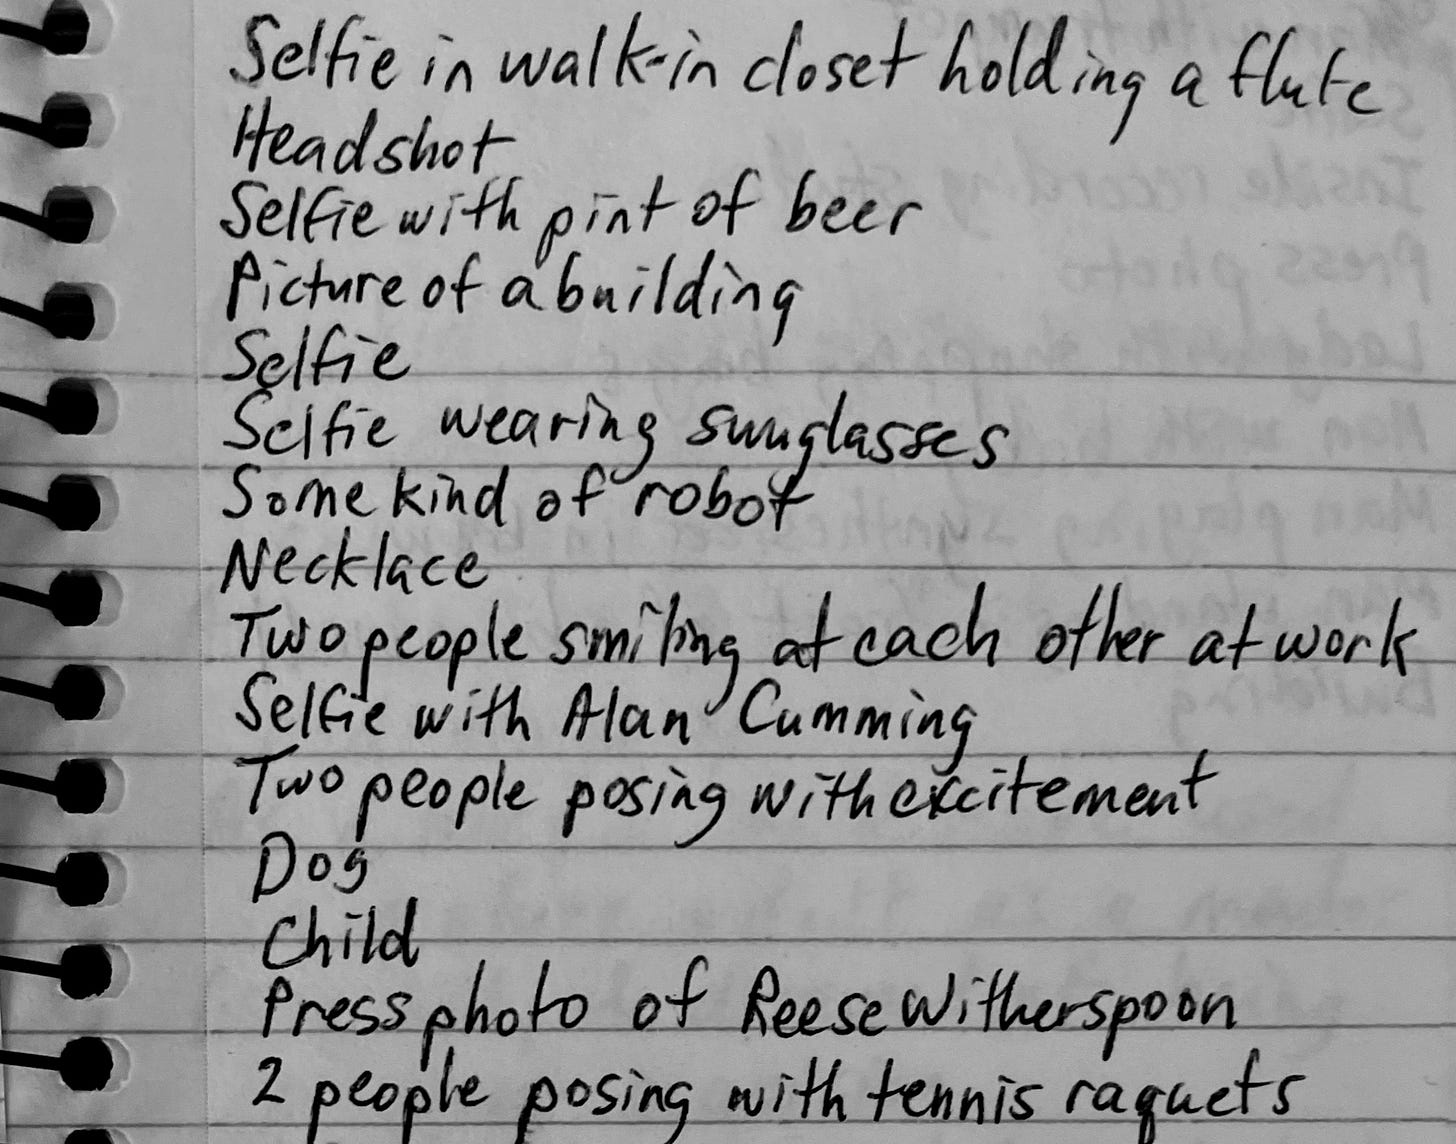 Selfie in walk-in closet holding a flute
Headshot
Selfie with pint of beer
Picture of a building
Selfie
Selfie wearing sunglasses
Some kind of robot
Necklace
Two people smiling at each other at work
Selfie with Alan Cumming
Two people posing with excitement
Dog
Child
Press photo of Reese Witherspoon
2 people posing with tennis raquets